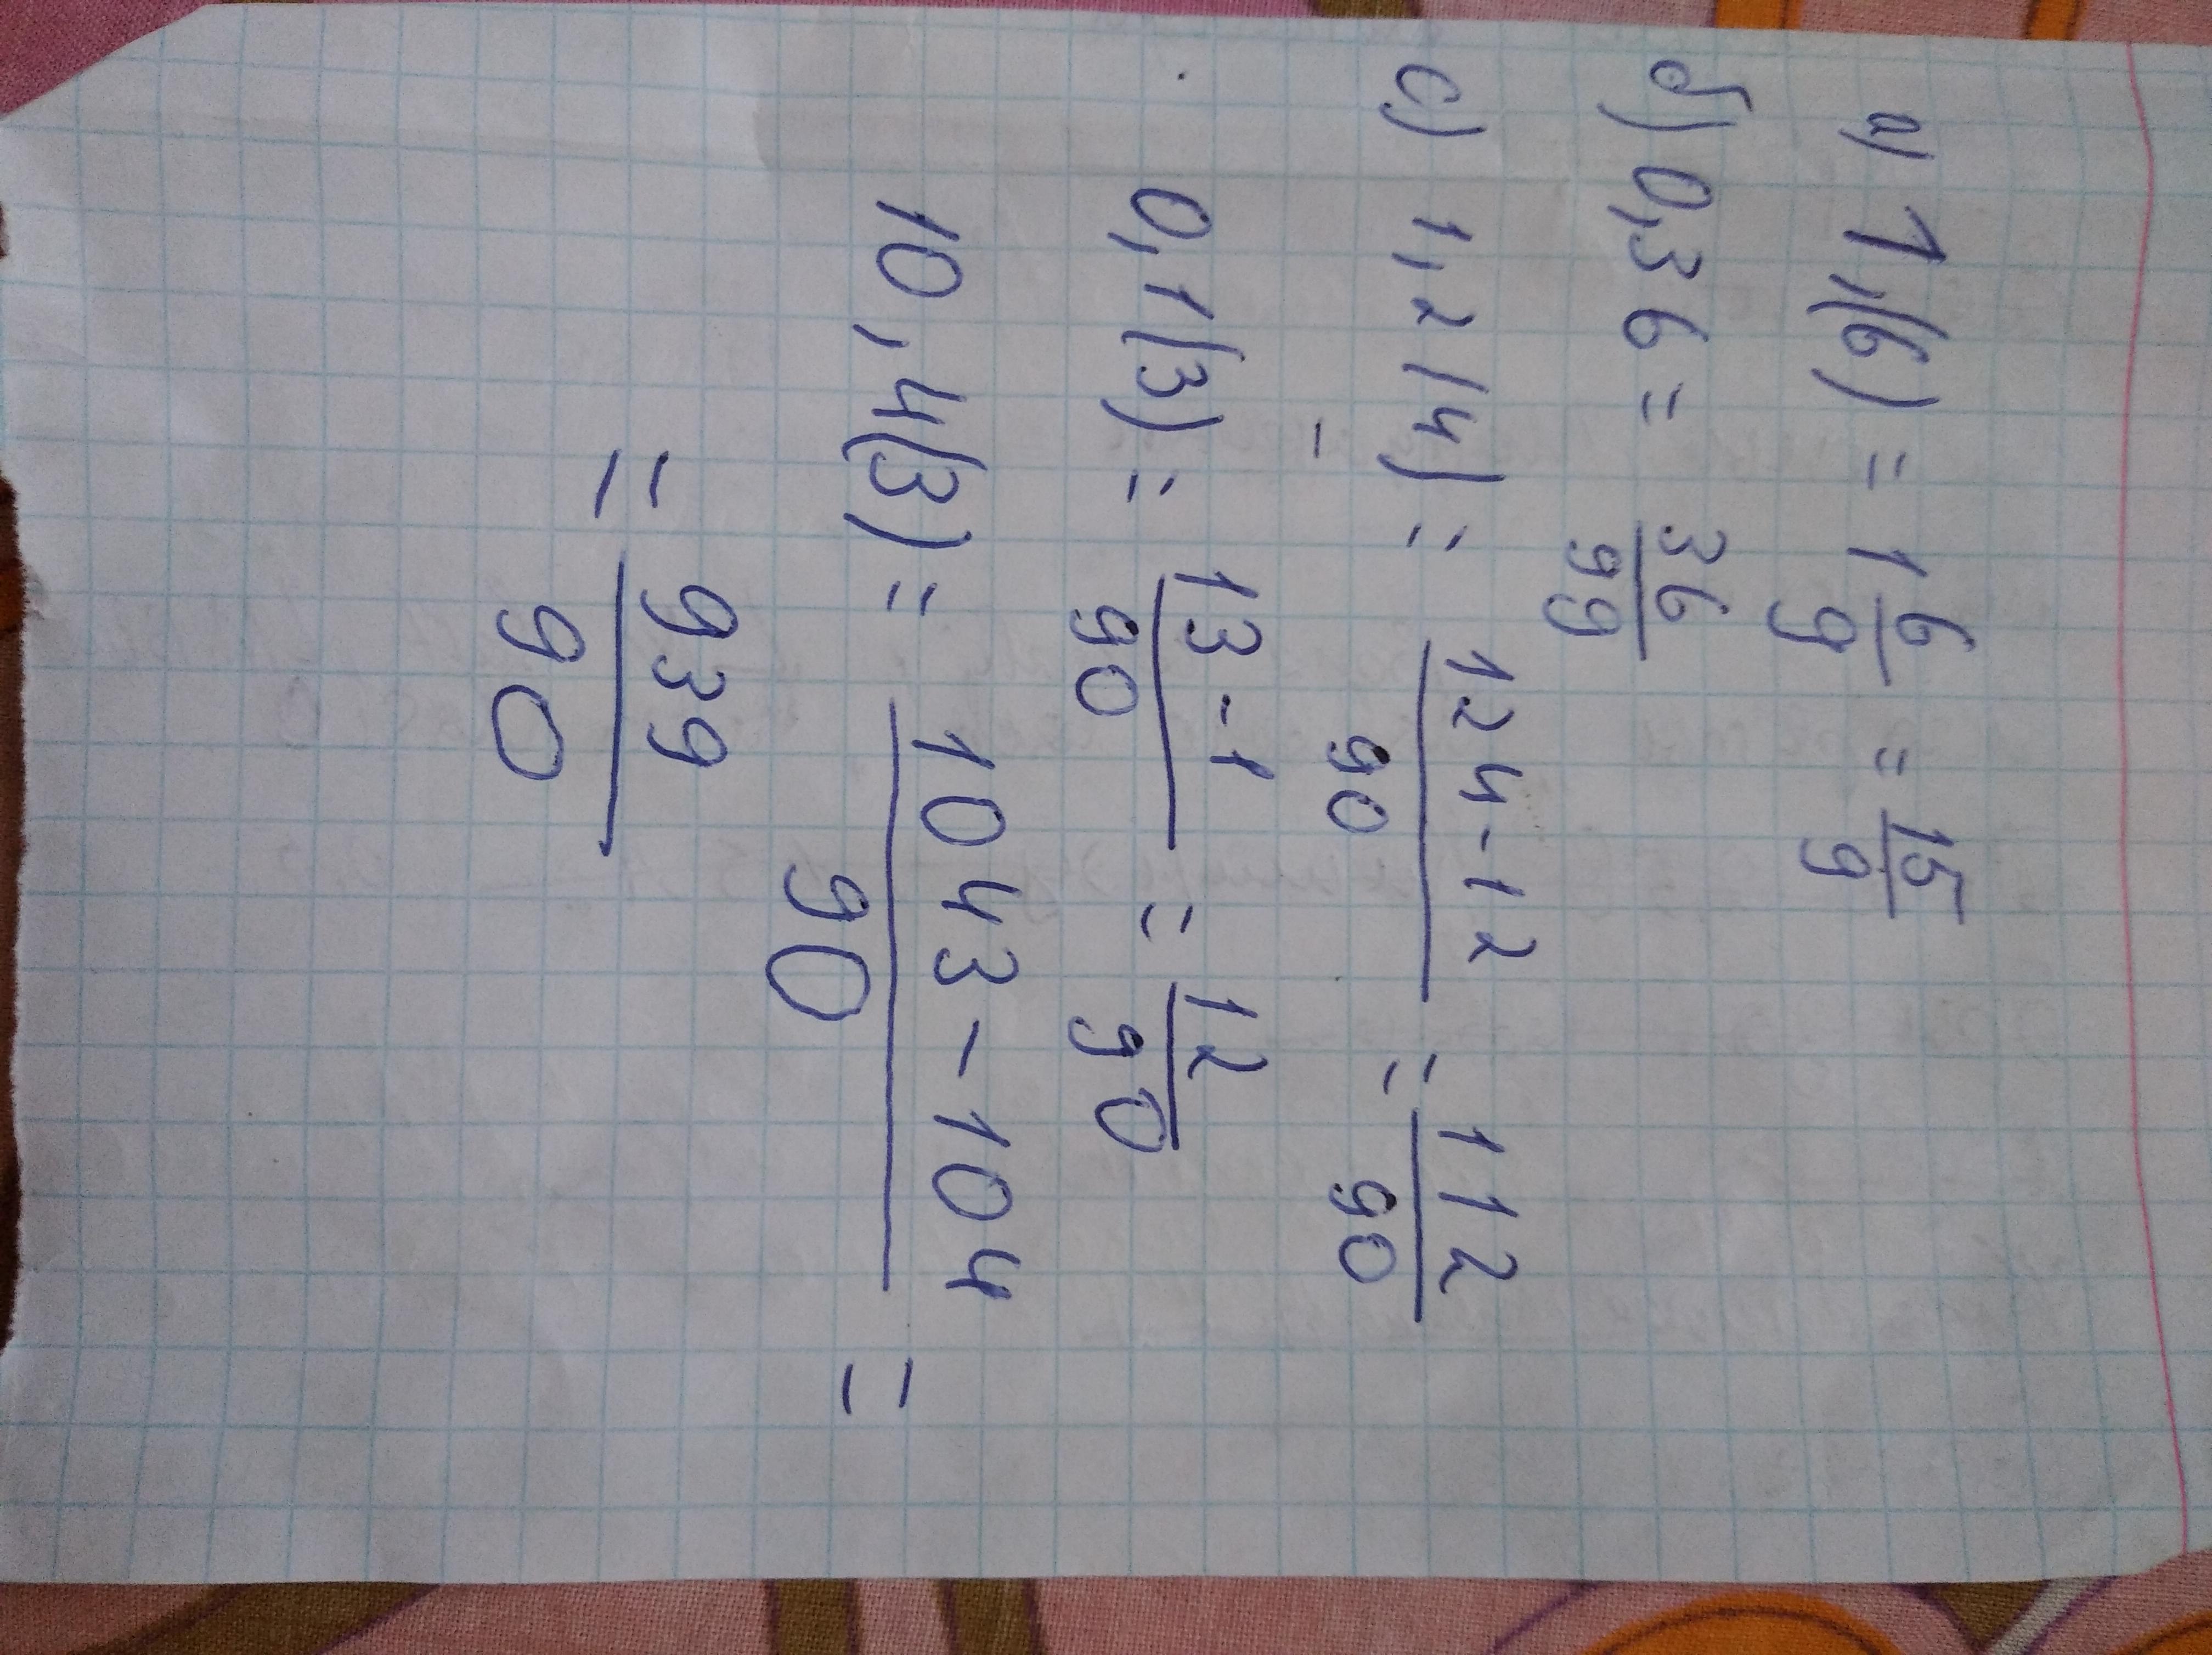 а) 1,(6) = 1 6/9 = 15/9
б) 0,36 = 36/99
с) 1,2(4) = 124-12/90 = 112/90
-
0,1(3) = 13-1/90 = 12/90
10,4(3) = 1043-104/90 =
= 939/90